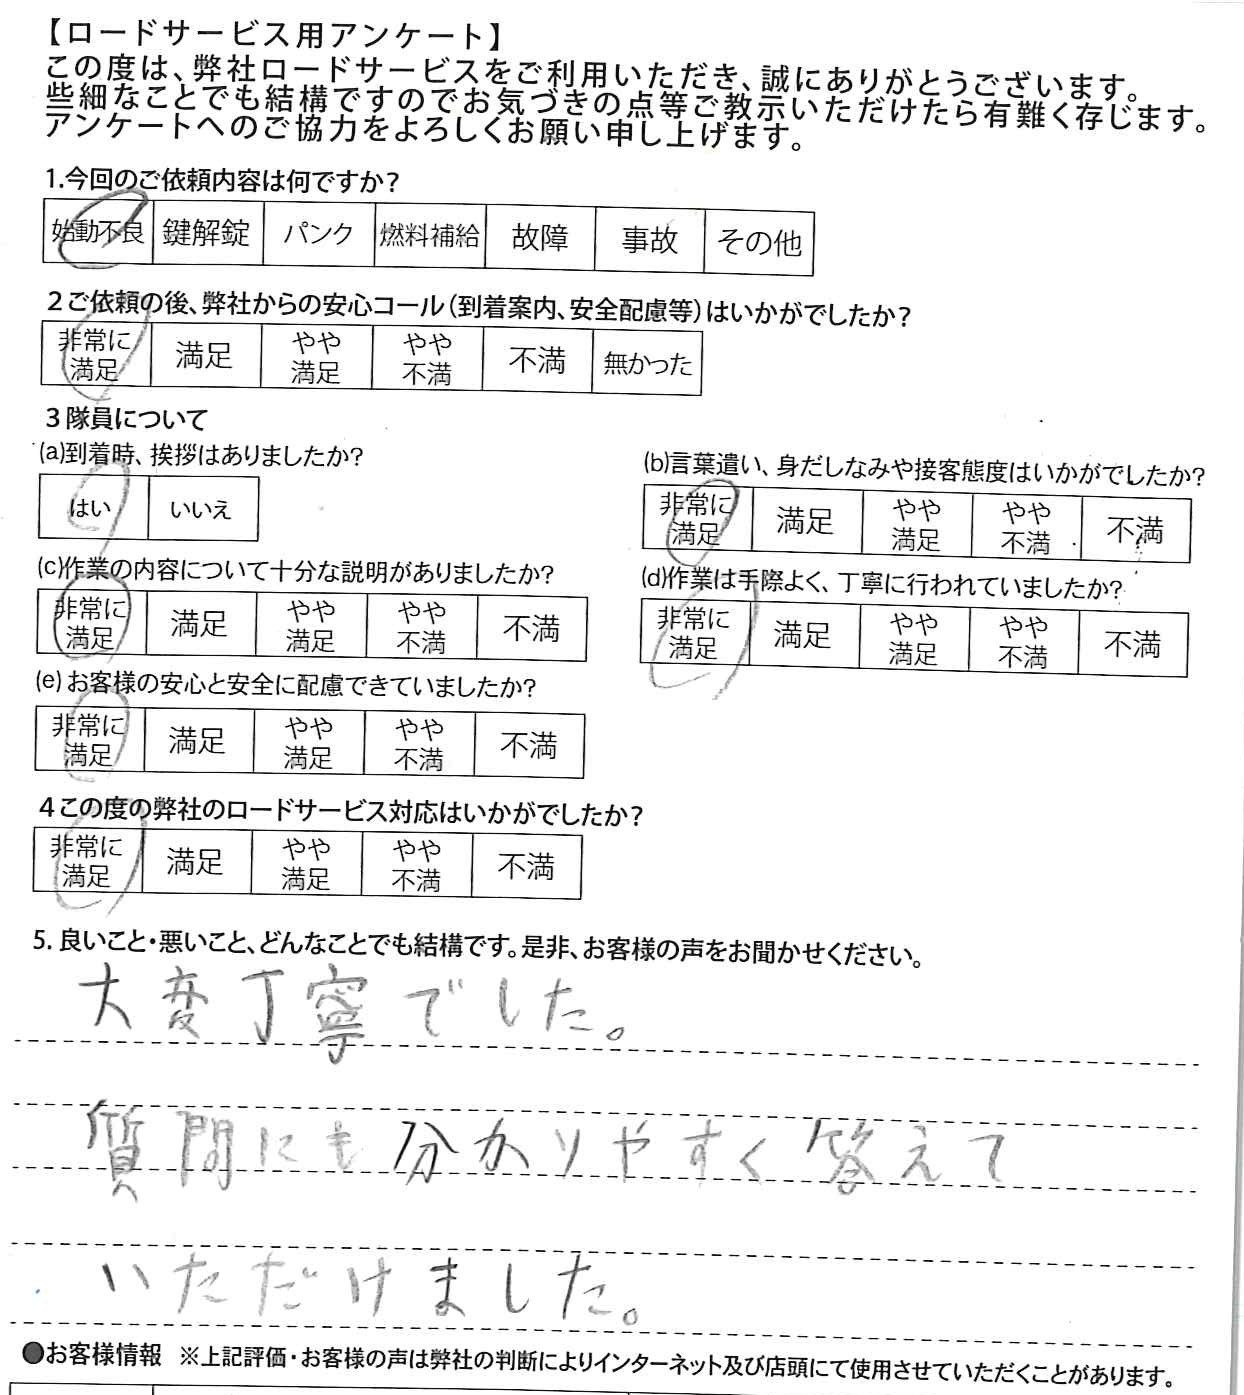 【ロードサービス用アンケート】
この度は、弊社ロードサービスをご利用いただき、誠にありがとうございます。
些細なことでも結構ですのでお気づきの点等ご教示いただけたら有難く存じます。
アンケートへのご協力をよろしくお願い申し上げます。
1.今回のご依頼内容は何ですか?
始動不良 鍵解錠 パンク 燃料補給 故障 事故 その他
2ご依頼の後、弊社からの安心コール(到着案内、安全配慮等)はいかがでしたか?
非常に満足 満足 やや満足 やや不満 不満 無かった
3隊員について
(a)到着時、挨拶はありましたか?
はい いいえ
(b)言葉遣い、身だしなみや接客態度はいかがでしたか?
非常に満足 満足 やや満足 やや不満 不満
(c)作業の内容について十分な説明がありましたか?
非常に満足 満足 やや満足 やや不満 不満
(d)作業は手際よく、丁寧に行われていましたか?
非常に満足 満足 やや満足 やや不満 不満
(e)お客様の安心と安全に配慮できていましたか?
非常に満足 満足 やや満足 やや不満 不満
4この度の弊社のロードサービス対応はいかがでしたか?
非常に満足 満足 やや満足 やや不満 不満
5. 良いこと・悪いこと、どんなことでも結構です。是非、お客様の声をお聞かせください。
大変丁寧でした。
質問にも分かりやすく答えて
いただけました。
●お客様情報 ※上記評価・お客様の声は弊社の判断によりインターネット及び店頭にて使用させていただくことがあります。